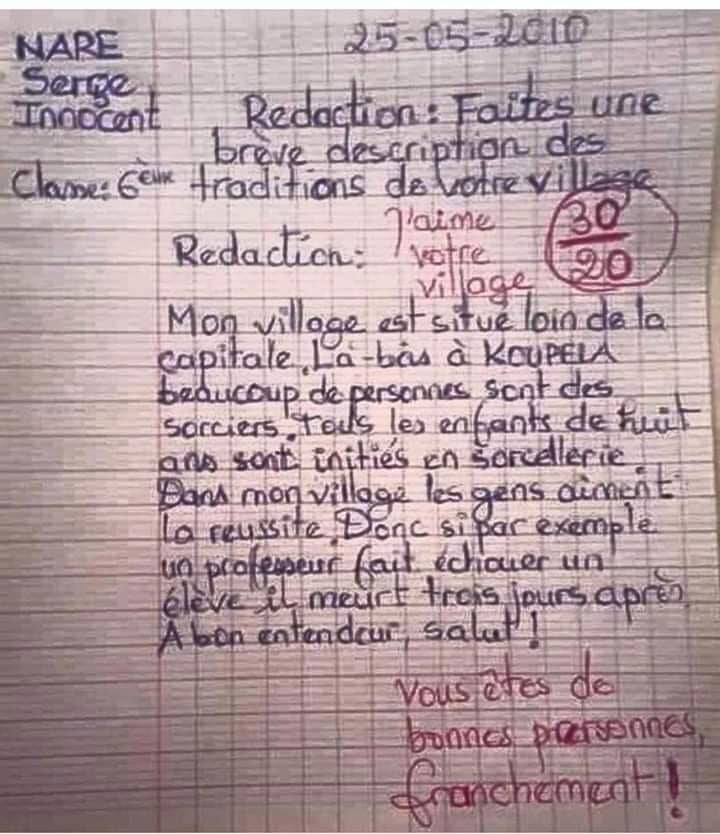 NARE
25-05-2010
Serge
Innocent
Redaction: Faites une
brève description des
Classe: 6ème traditions de votre village
J'aime
votre
village
30
20
Redaction:
Mon village est situé loin de la
capitale. Là-bas à KOUPELA
beaucoup de personnes sont des
sorciers. Tous les enfants de huit
ans sont initiés en sorcellerie.
Dans mon village les gens aiment
la reussite. Donc si par exemple
un professeur fait échouer un
élève il meurt trois jours après.
A bon entendeur, salut!
Vous êtes de
bonnes personnes,
franchement!